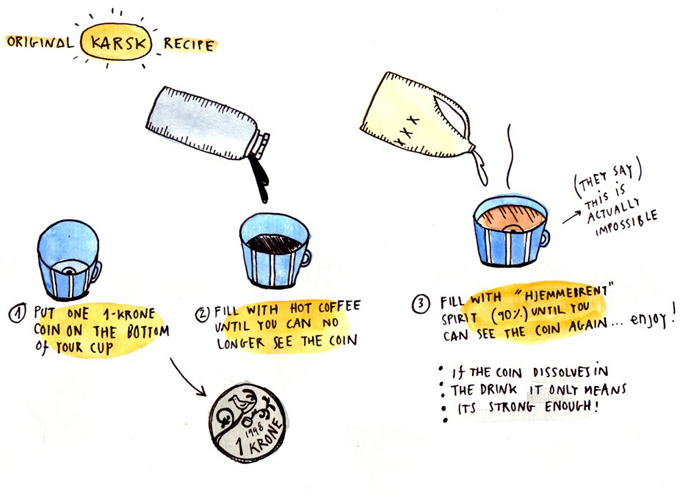 ORIGINAL KARSK RECIPE
XXX
(THEY SAY)
THIS IS
ACTUALLY
IMPOSSIBLE
① PUT ONE 1-KRONE
COIN ON THE BOTTOM
OF YOUR CUP
② FILL WITH HOT COFFEE
UNTIL YOU CAN NO
LONGER SEE THE COIN
③ FILL WITH "HJEMMEBRENT"
SPIRIT (90%) UNTIL YOU
CAN SEE THE COIN AGAIN... enjoy!
IF THE COIN DISSOLVES IN
THE DRINK IT ONLY MEANS
ITS STRONG ENOUGH!
1998
1 KRONE